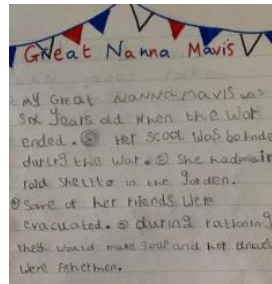 Great Nanna Mavis
my Great NANNA MAVIS was
six years old when the war
ended. Her scool was
during the war. She had an air
raid sheltto in the garden.
Some of her friends were
evacuated. during rationing
they would make soup and her
were fishermen.